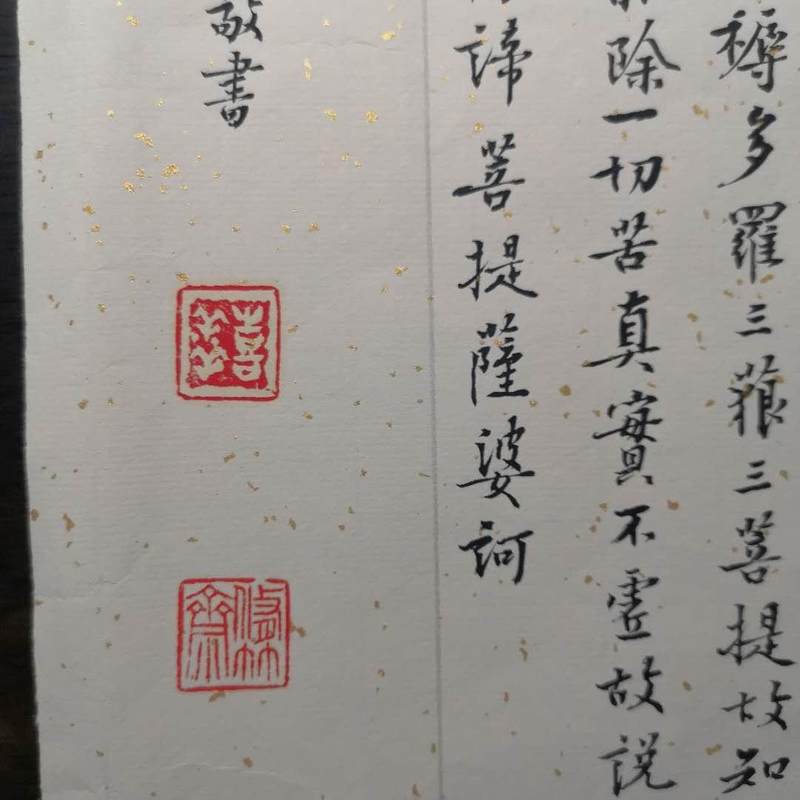 耨多羅三藐三菩提故知
除一切苦真實不虛故說
諦菩提薩婆訶
敬書